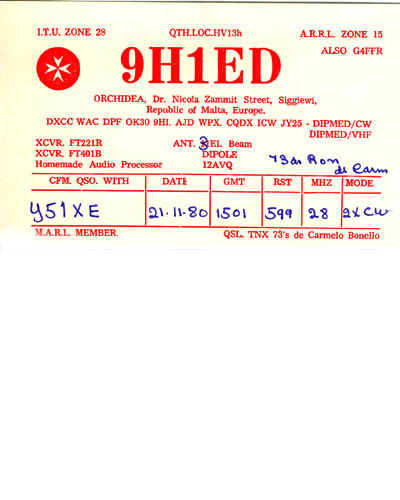 I.T.U. ZONE 28 QTH.LOC.HV13h A.R.R.L. ZONE 15
ALSO G4FFR
9H1ED
ORCHIDEA, Dr. Nicola Zammit Street, Siggiewi,
Republic of Malta, Europe.
DXCC WAC DPF OK30 9HI. AJD WPX. CQDX ICW JY25 - DIPMED/CW
DIPMED/VHF
XCVR. FT221R ANT. 3 EL Beam
XCVR. FT401B DIPOLE
Homemade Audio Processor 12AVQ
73 de Carm
CFM. QSO. WITH DATE GMT RST MHZ MODE
Y51XE 21.11.80 1501 599 28 2XCW
M.A.R.L. MEMBER. QSL. TNX 73's de Carmelo Bonello